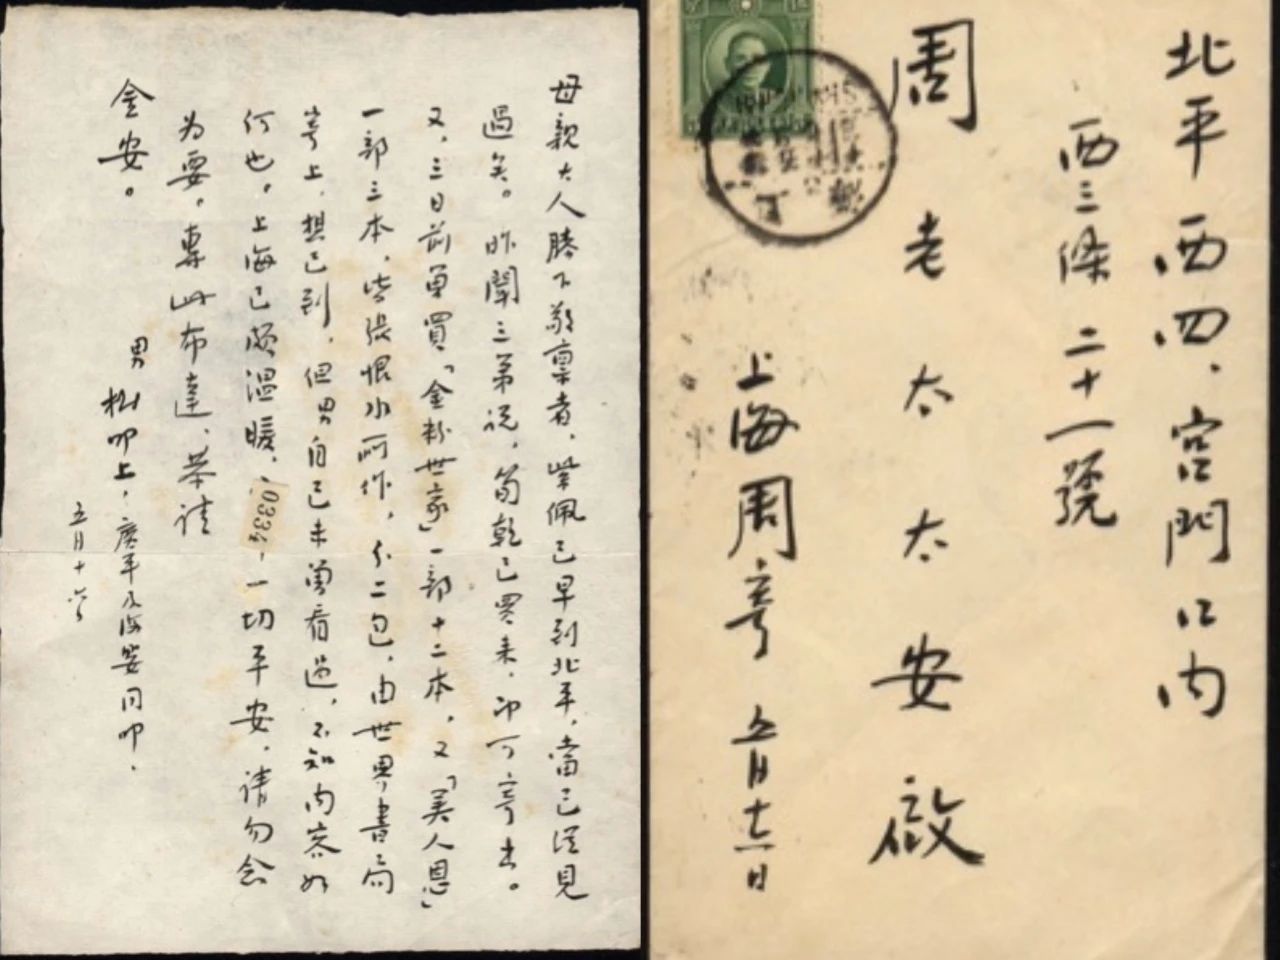 母親大人膝下敬稟者,紫佩已早到北平,當已經見
過矣。昨聞三弟說,筍乾已買來,即可寄出。
又,三日前曾買「金粉世家」一部十二本,又「美人恩」
一部三本,皆張恨水所作,分二包,由世界書局
寄上,想已到,但男自己未曾看過,不知內容如
何也。上海已頗溫暖,
0334
一切平安,請勿念
为要。專此布達,恭請
金安。
男 樹叩上,廣平及海嬰同叩。
五月十六夜
北平西四,宮門口內
西三條 二十一號
周老太太安啟
上海周寄 五月十六日